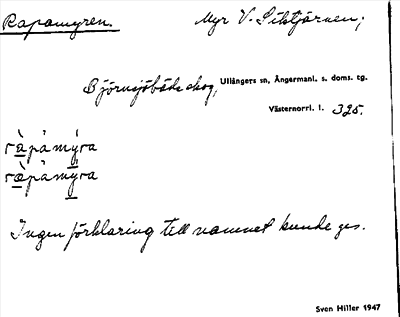 Rapamyren. Myr V. Siktjärnen;
Björnsjöbäds skog, Ullångers sn, Ångermanl. s. doms. tg.
Västernorrl. l. 325.
ràpamýra
ræ̀pamýra
Ingen förklaring till namnet kunde ges.
Sven Hiller 1947